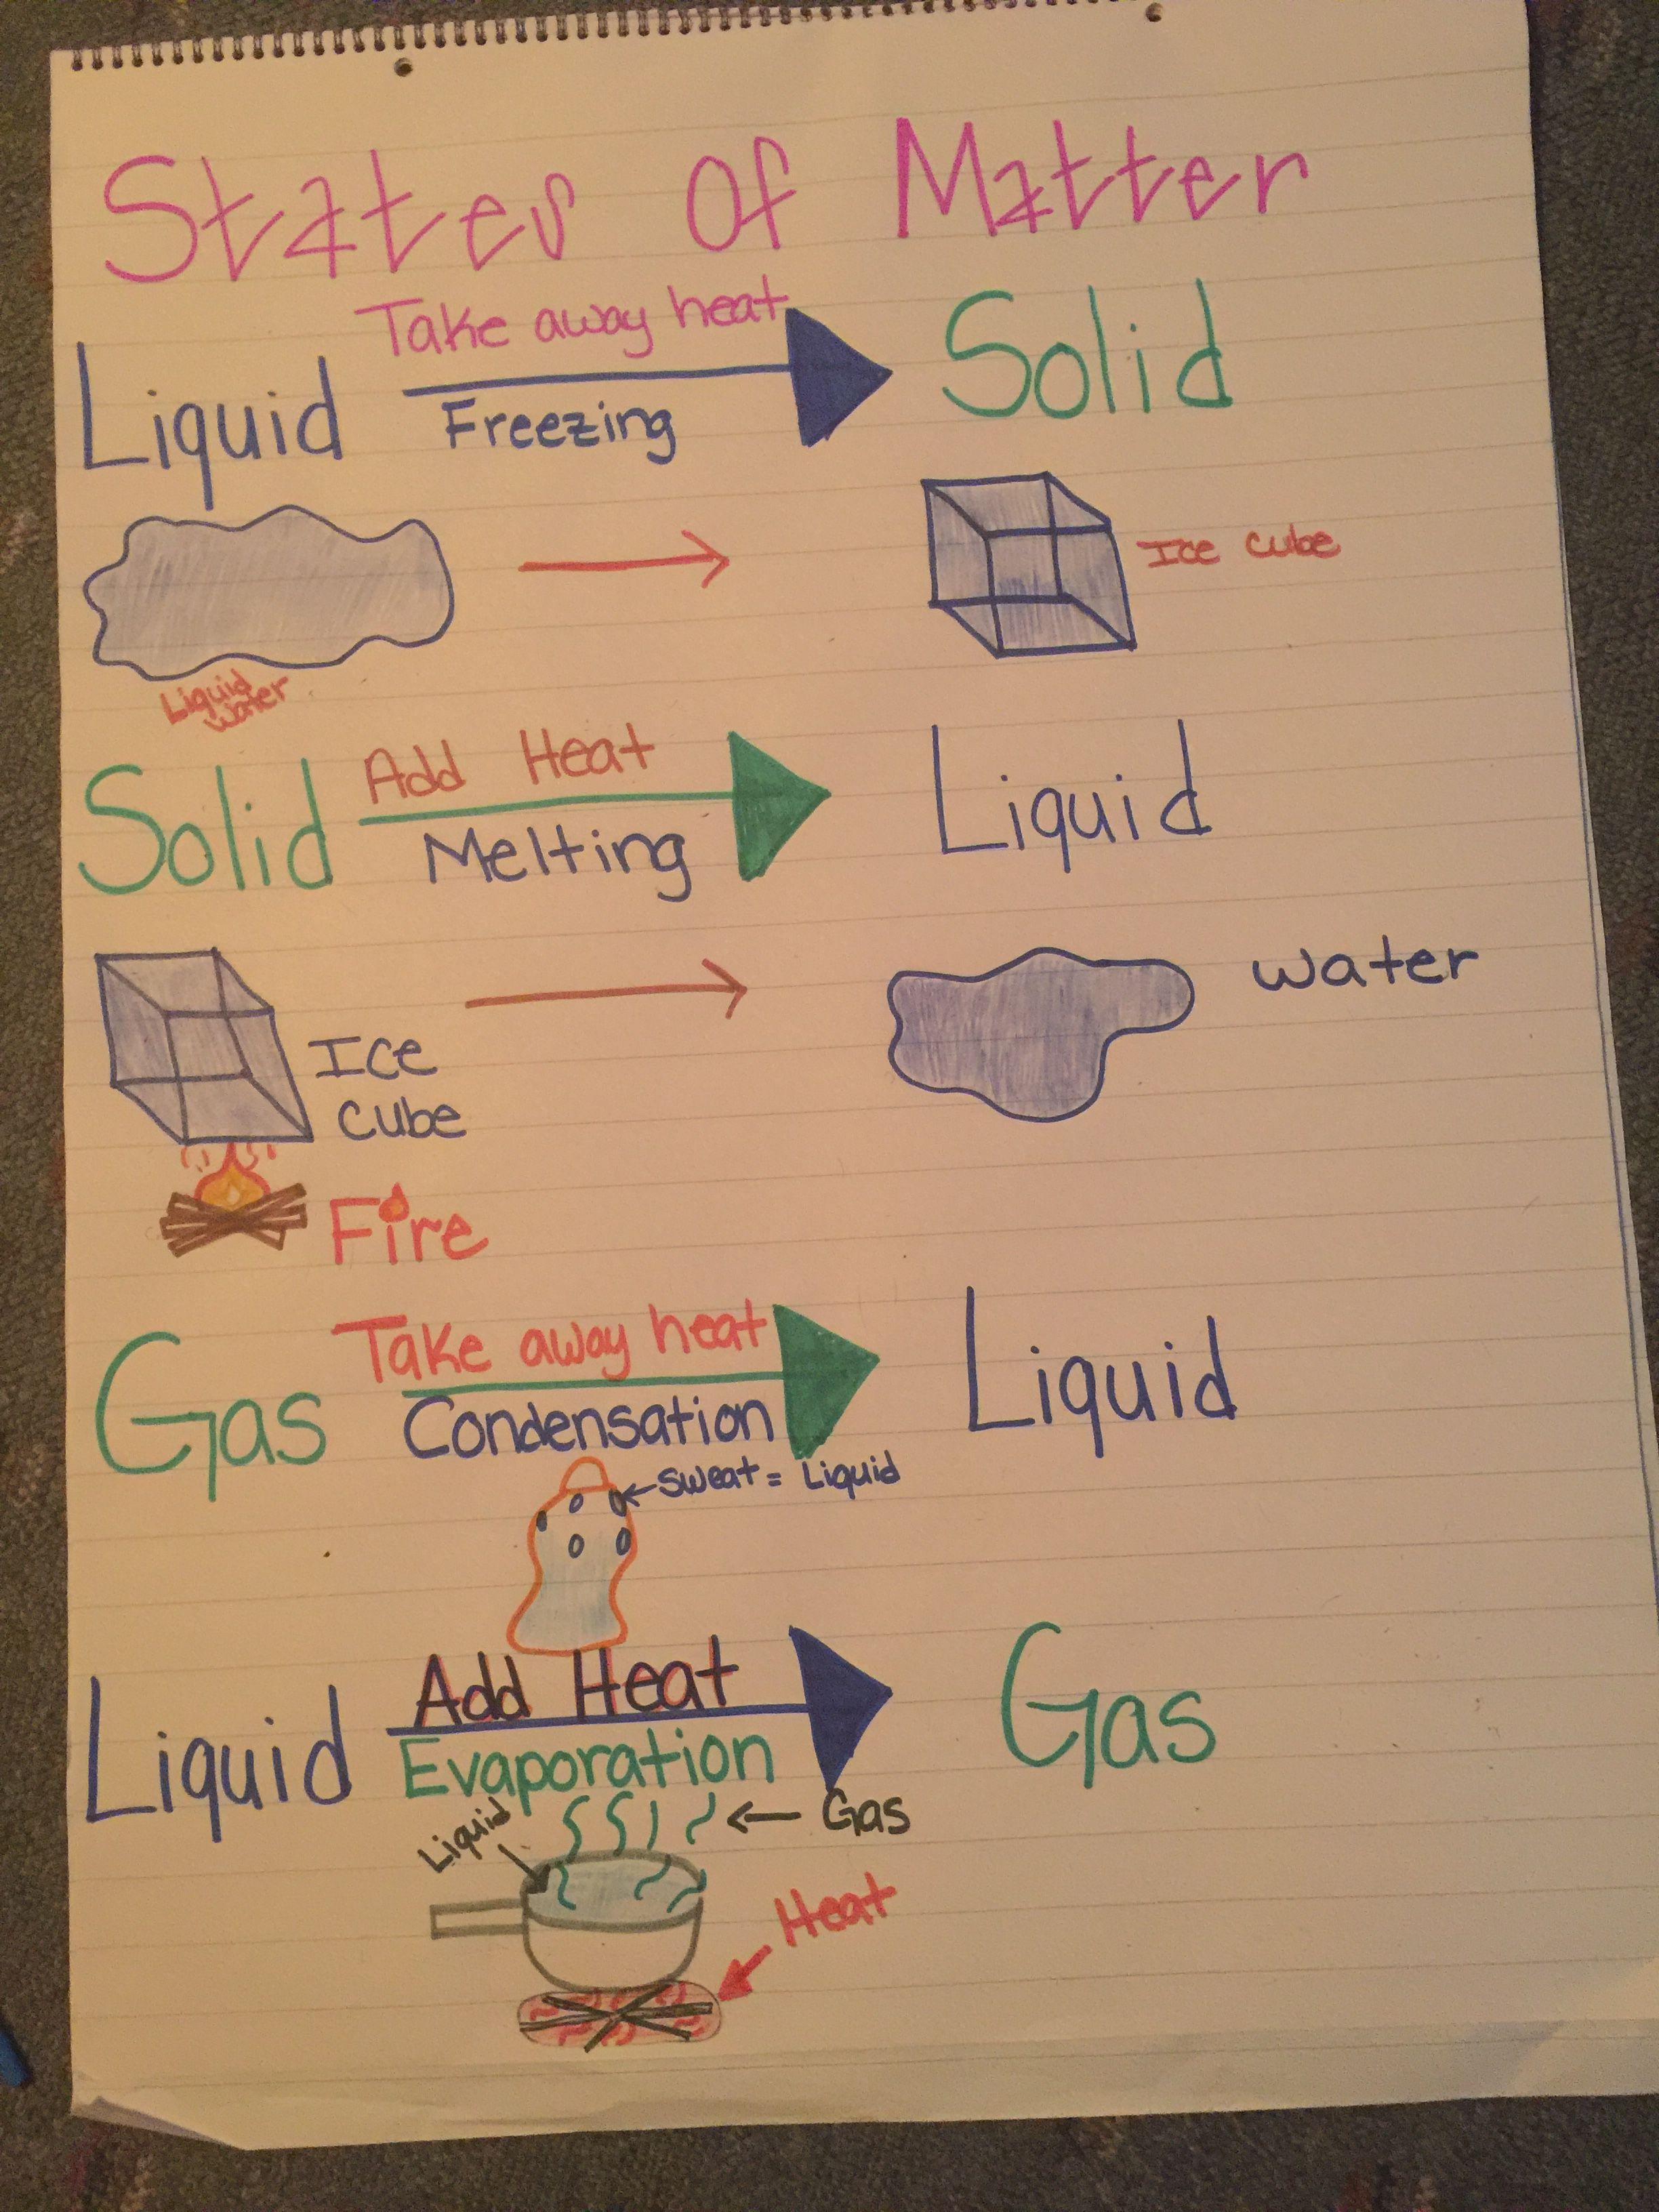 States Of Matter
Take away heat
Liquid
Solid
Freezing
Ice cube
Liquid
water
Add Heat
Solid
Liquid
Melting
water
Ice
cube
Fire
Take away heat
Gas
Liquid
Condensation
sweat = Liquid
Add Heat
Liquid
Gas
Evaporation
Gas
Liquid
Heat